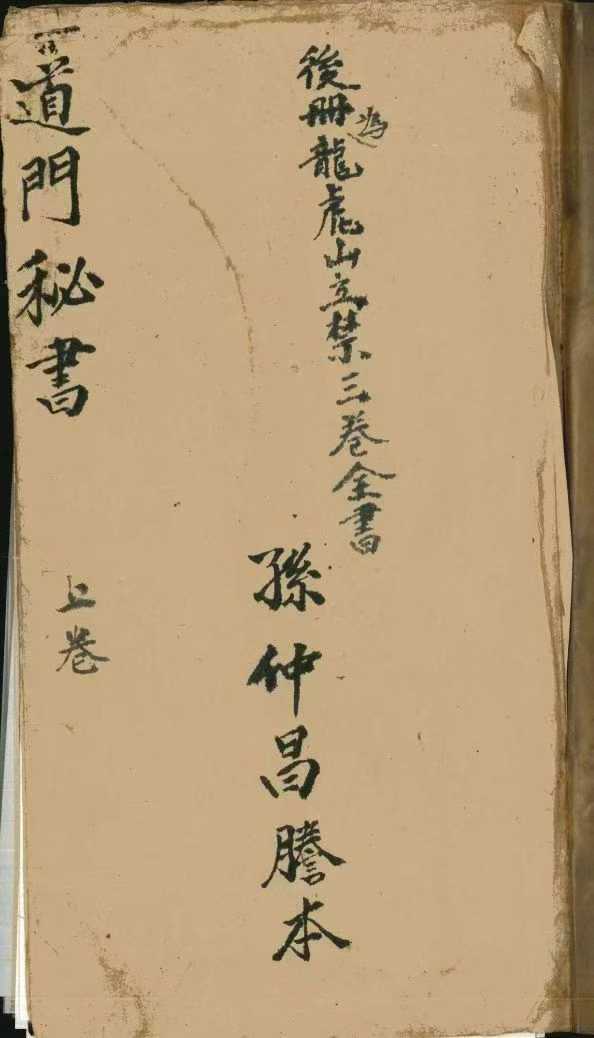 後冊龍虎山立禁三卷全書
孫仲昌謄本
道門秘書
上卷